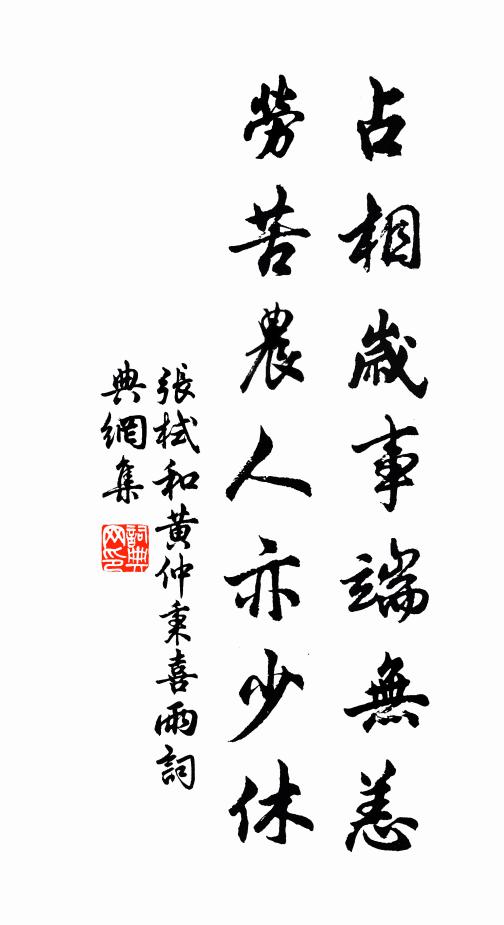 占相歲事端無恙
勞苦農人亦少休
張栻和黃仲秉喜雨詞
典網集
詞典
网印